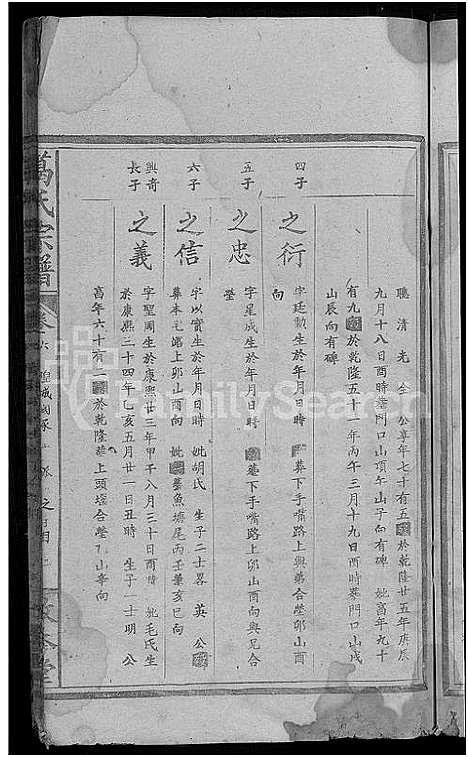 聽 清 光 全 公享年七十有五 於乾隆廿五年庚辰
九月十八日酉時葬門口山頂午山子向有碑 妣高年九十
有九 於乾隆五十一年丙午三月十九日酉時葬門口山戍
山辰向有碑
四子
之衍
字廷勳生於年月日時 葬下手嘴路上與弟合塋卯山酉
向
五子
之忠
字星成生於年月日時 墓下手嘴路上卯山酉向與兄合
塋
六子
之信
字以實生於年月日時 妣胡氏 生子二士畧 英 公
葬本宅路上卯山酉向 妣 葬魚塘尾丙壬兼亥巳向
興奇
長子
之義
字聖周生於康熙廿三年甲午八月三十日酉時 妣毛氏生
於康熙三十四年乙亥五月廿一日丑時 生子一士明 公
高年六十有二 於乾隆 上頭塅合塋 山 向
萬氏宗譜
卷六
FamilySearch